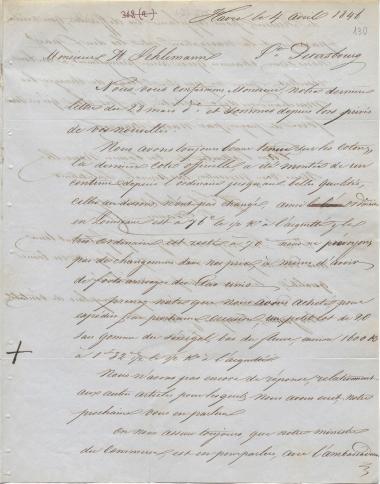 368 (a)
Havre le 4 avril 1846
130
Monsieur H. Schliemann St. Petersbourg
Nous vous confirmons Monsieur notre dernière
lettre du 28 mars d. et sommes depuis lors privés
de vos nouvelles
Nous avons toujours beau sur les cotons,
la dernière cote officielle a été montée de un
centime depuis l'ordinaire jusqu'aux belles qualités,
celles au dessous n'ont pas changé, ainsi
en Louisiane est à 76 c le ½ K à l'acquitté, le
très ordinaire est resté à 70 nous ne prévoyons
pas de changement dans nos prix à moins d'avoir
de forts arrivages des Etats unis
prenez note que nous avons acheté pour
expédier par prochaine un petit lot de 20
sur gomme du Sénégal, bas du fleuve, environ 1600 K
à 1 32 ½ le ½ K à l'acquitté
Nous n'avons pas encore de réponse relativement
aux autres articles pour lesquels nous avons écrit, notre
prochaine vous en parlera
On nous assure toujours, que notre ministre
du Commerce est en pourparlers, avec l'ambassadeur